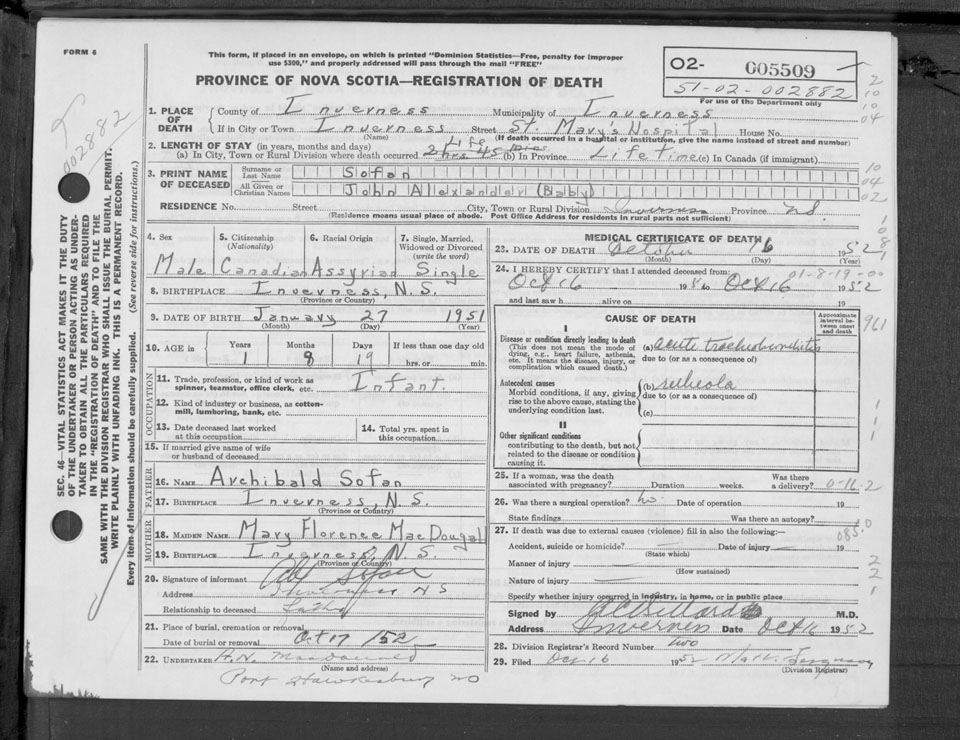 FORM 6
This form, if placed in an envelope, on which is printed "Dominion Statistics—Free, penalty for improper
use $300," and properly addressed will pass through the mail "FREE"
PROVINCE OF NOVA SCOTIA—REGISTRATION OF DEATH
02- 005509
51-02-002882
For use of the Department only
002882
1. PLACE OF DEATH
County of Inverness Municipality of Inverness
If in City or Town Inverness Street St. Mary's Hospital House No.
(Name) (If death occurred in a hospital or institution, give the name instead of street and number)
2. LENGTH OF STAY (in years, months and days) Life
(a) In City, Town or Rural Division where death occurred 2 hrs 45 mins (b) In Province Life Time (c) In Canada (if immigrant)
3. PRINT NAME OF DECEASED
Surname or Last Name Sofan
All Given or Christian Names John Allexander (Baby)
RESIDENCE No. Street City, Town or Rural Division Inverness Province N.S.
(Residence means usual place of abode. Post Office Address for residents in rural parts not sufficient)
4. Sex Male
5. Citizenship (Nationality) Canadian
6. Racial Origin Assyrian
7. Single, Married, Widowed or Divorced (write the word) Single
8. BIRTHPLACE Inverness, N.S.
(Province or Country)
9. DATE OF BIRTH January 27 1951
(Month) (Day) (Year)
10. AGE in Years 1 Months 8 Days 19 If less than one day old hrs. or min.
OCCUPATION
11. Trade, profession, or kind of work as spinner, teamster, office clerk, etc. Infant.
12. Kind of industry or business, as cotton-mill, lumbering, bank, etc.
13. Date deceased last worked at this occupation
14. Total yrs. spent in this occupation
15. If married give name of wife or husband of deceased
FATHER
16. NAME Archibald Sofan
17. BIRTHPLACE Inverness, N.S.
(Province or Country)
MOTHER
18. MAIDEN NAME Mary Florence MacDougall
19. BIRTHPLACE Inverness, N.S.
(Province or Country)
20. Signature of informant Sofan
Address Inverness N S
Relationship to deceased Father
21. Place of burial, cremation or removal
Date of burial or removal Oct 17 /52
22. UNDERTAKER
(Name and address)
Port Hawkesbury N S
MEDICAL CERTIFICATE OF DEATH
23. DATE OF DEATH October 16 1952
(Month) (Day) (Year)
24. I HEREBY CERTIFY that I attended deceased from: 01-8-19-00
Oct 16 19 to Oct 16 1952
and last saw h alive on 19
CAUSE OF DEATH
Approximate interval between onset and death
I
Disease or condition directly leading to death
(This does not mean the mode of dying, e.g., heart failure, asthenia, etc. It means the disease, injury, or complication which caused death.)
(a) acute tracheobronchitis
due to (or as a consequence of)
Antecedent causes
Morbid conditions, if any, giving rise to the above cause, stating the underlying condition last.
(b) rubeola
due to (or as a consequence of)
(c)
II
Other significant conditions
contributing to the death, but not related to the disease or condition causing it.
25. If a woman, was the death associated with pregnancy? Duration weeks. Was there a delivery? 0-16-2
26. Was there a surgical operation? no Date of operation 19
State findings Was there an autopsy?
27. If death was due to external causes (violence) fill in also the following:— 085
Accident, suicide or homicide? Date of injury 19
(State which)
Manner of injury
(How sustained)
Nature of injury
Specify whether injury occurred in industry, in home, or in public place
Signed by M.D.
Address Inverness Date Oct 16 1952
28. Division Registrar's Record Number two
29. Filed Oct 16 1952
(Division Registrar)
SEC. 46—VITAL STATISTICS ACT MAKES IT THE DUTY
OF THE UNDERTAKER OR PERSON ACTING AS UNDER-
TAKER TO OBTAIN ALL THE PARTICULARS REQUIRED
IN THE "REGISTRATION OF DEATH" AND TO FILE THE
SAME WITH THE DIVISION REGISTRAR WHO SHALL ISSUE THE BURIAL PERMIT.
WRITE PLAINLY WITH UNFADING INK. THIS IS A PERMANENT RECORD.
Every item of information should be carefully supplied. (See reverse side for instructions.)
2
10
10
04
10
04
02
961